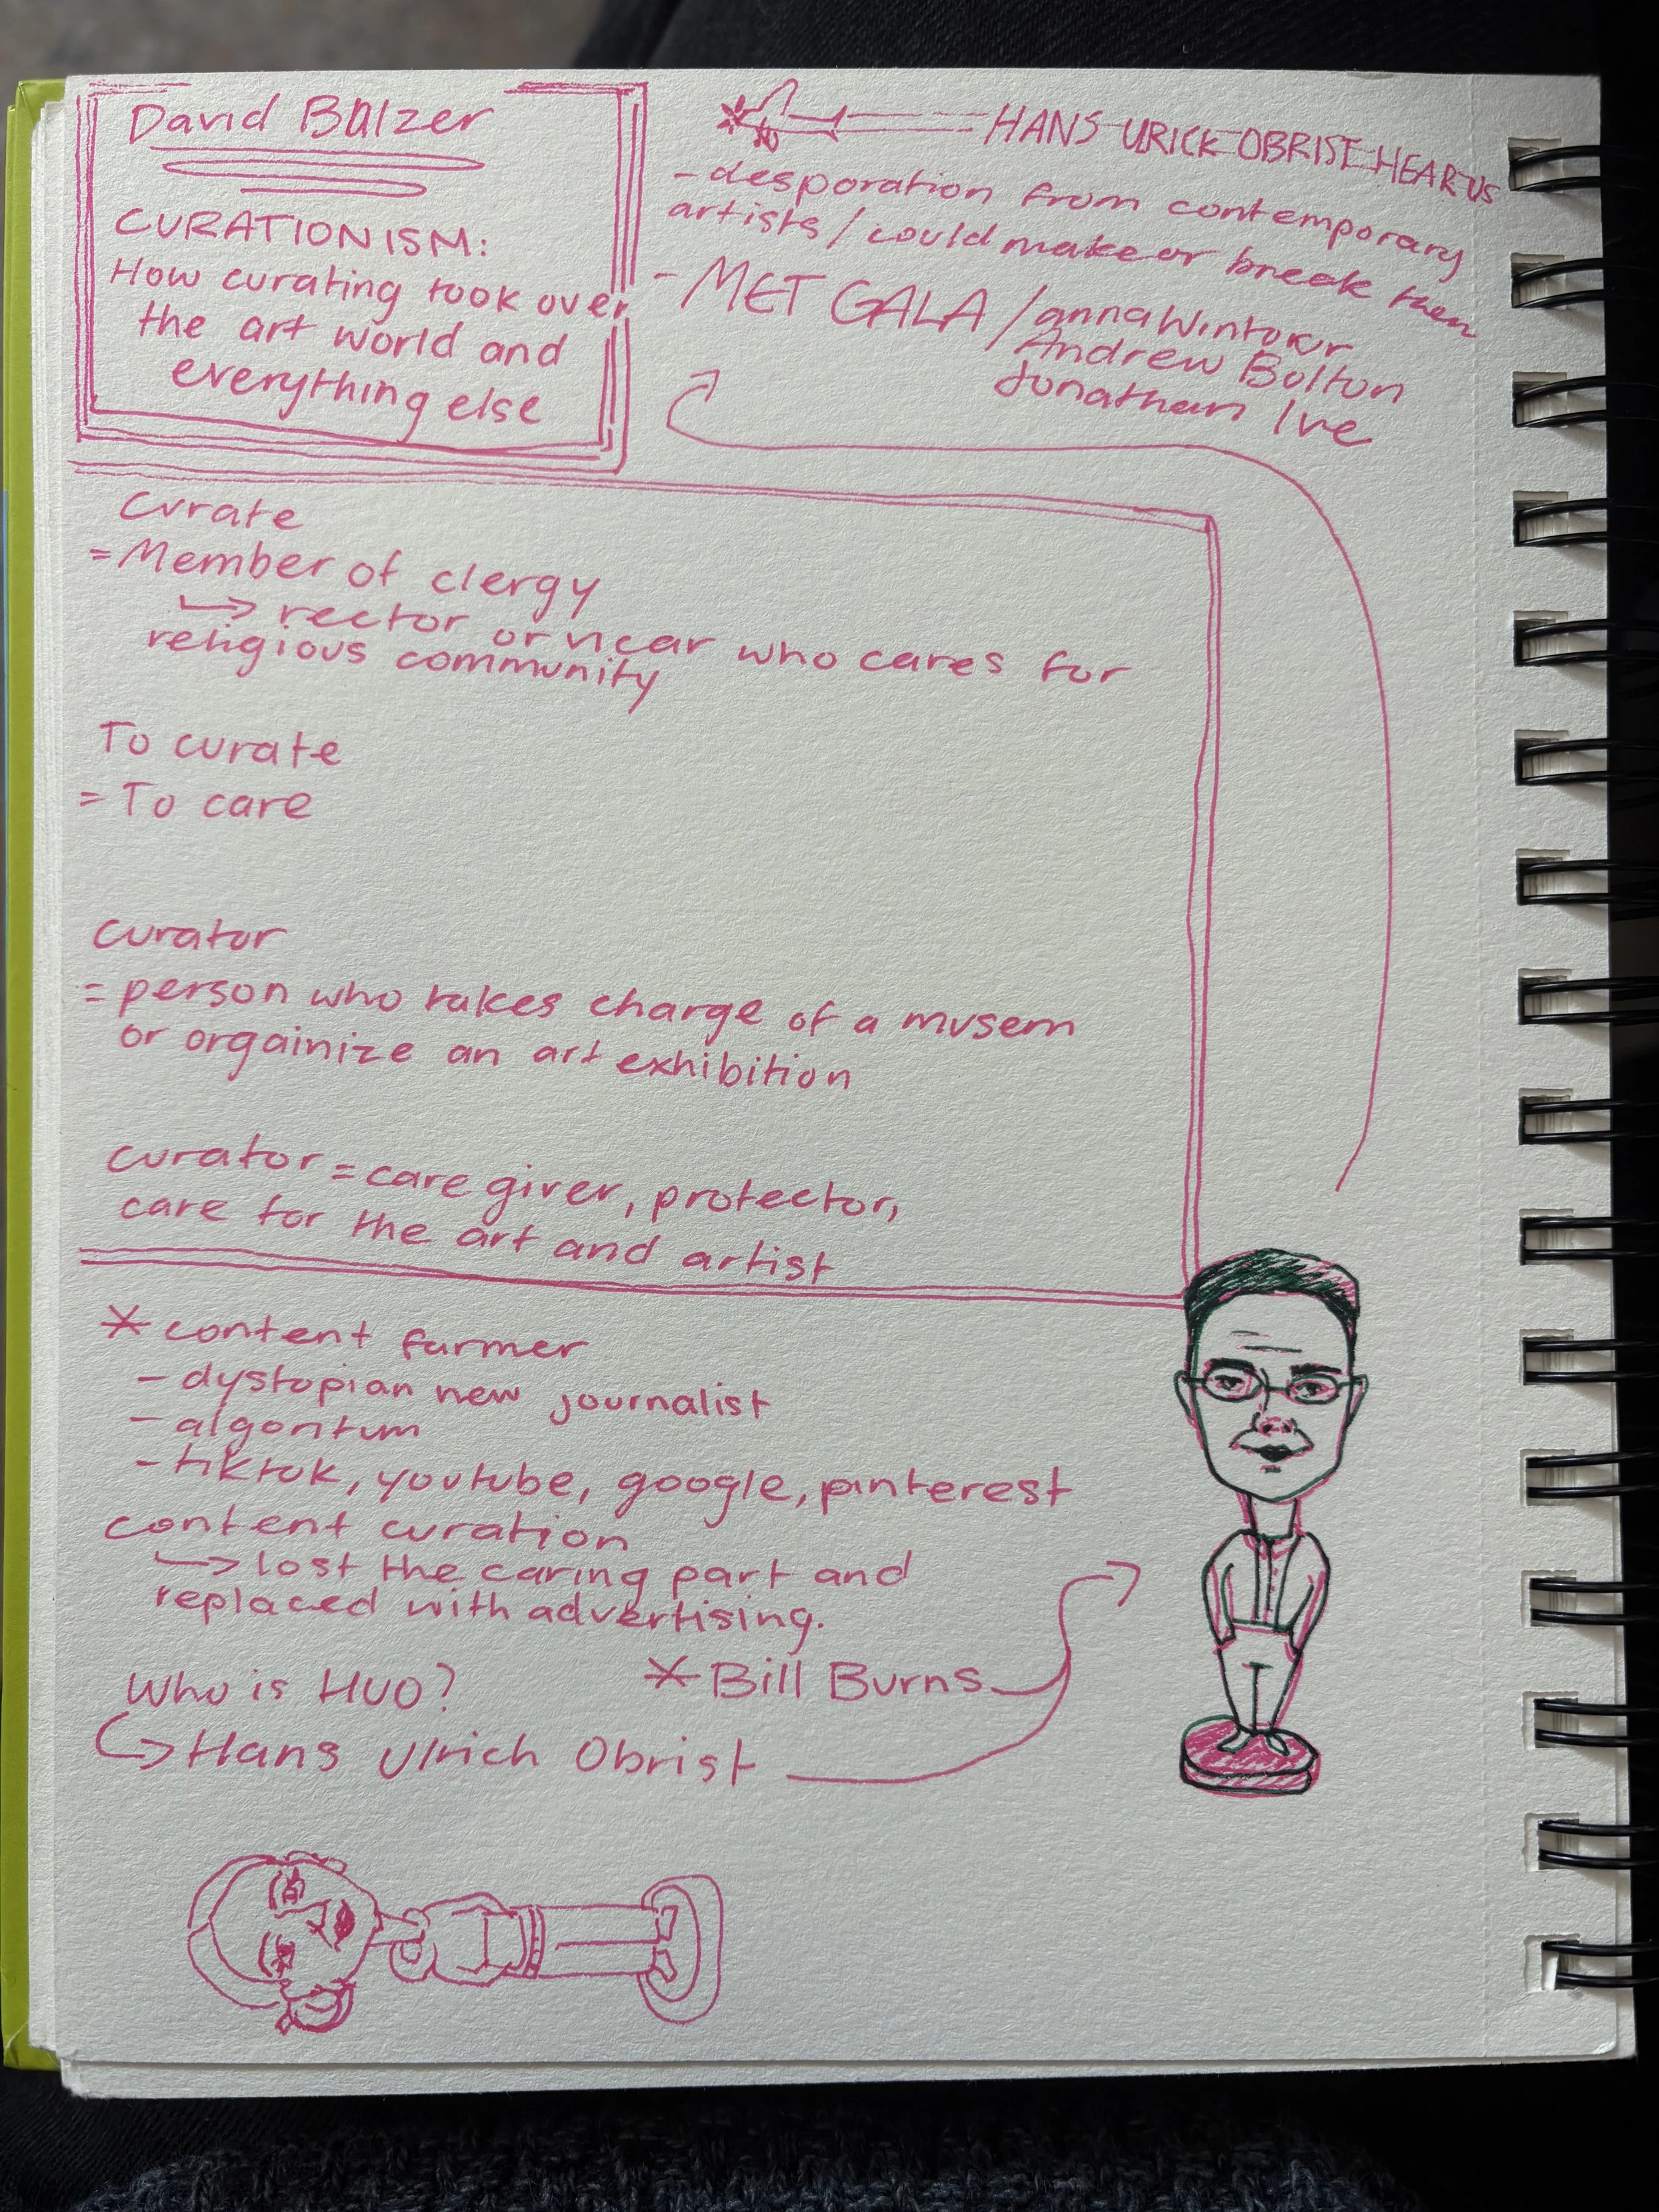 David Balzer
CURATIONISM:
How curating took over
the art world and
everything else
HANS URICK OBRIST HEAR US
- desporation from contemporary
artists / could make or break them
- MET GALA / anna Wintour
Andrew Bolton
Jonathan Ive
Curate
= Member of clergy
→ rector or vicar who cares for
religious community
To curate
= To care
curator
= person who takes charge of a musem
or orgainize an art exhibition
curator = care giver, protector,
care for the art and artist
* content farmer
- dystopian new journalist
- algoritum
- tiktok, youtube, google, pinterest
content curation
→ lost the caring part and
replaced with advertising.
Who is HUO?
* Bill Burns
→ Hans Ulrich Obrist